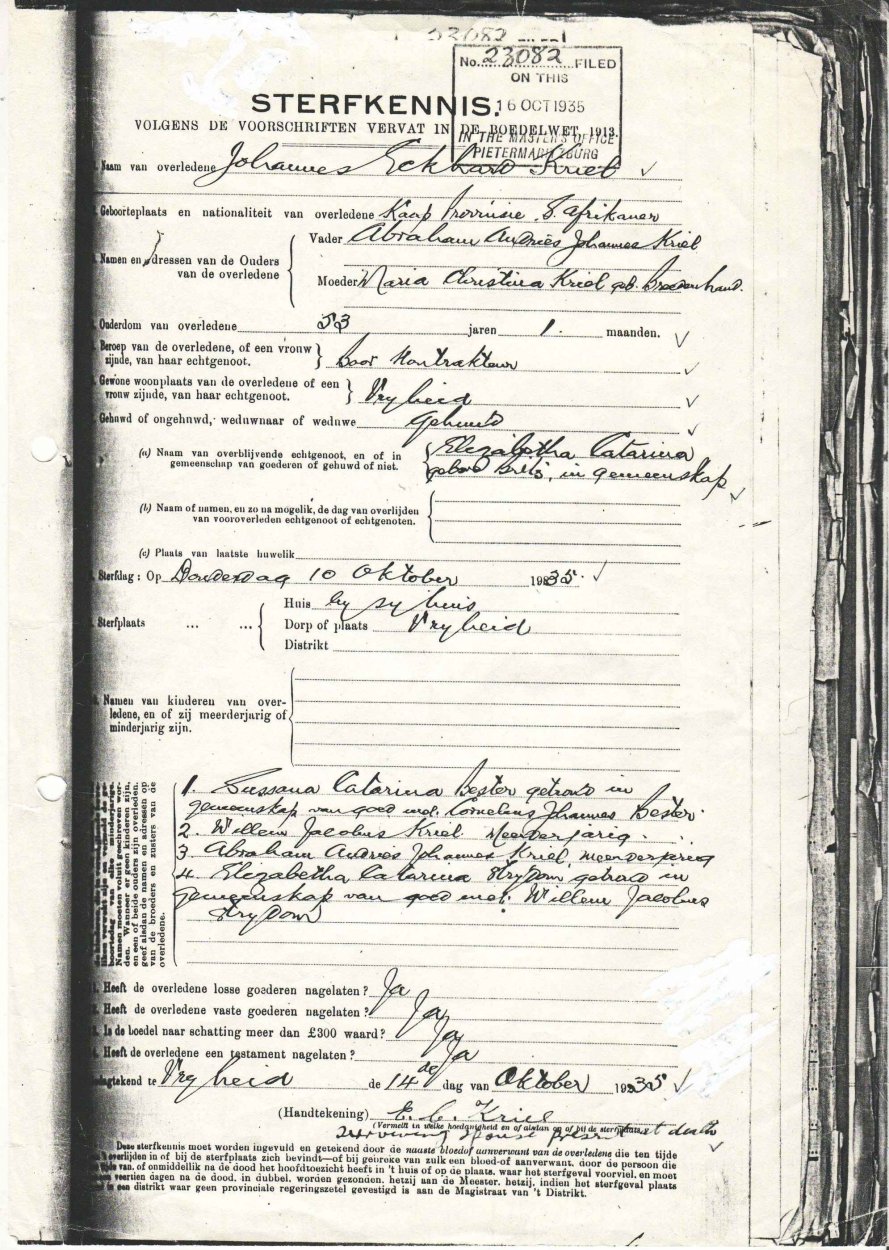 23082
No. 23082 FILED
ON THIS
16 OCT 1935
IN THE MASTER'S OFFICE
PIETERMARITZBURG
STERFKENNIS.
VOLGENS DE VOORSCHRIFTEN VERVAT IN DE BOEDELWET, 1913.
Naam van overledene Johannes Eckhard Kriel
Geboorteplaats en nationaliteit van overledene Kaap Provinsie, S. Afrikaner
Namen en adressen van de Ouders van de overledene
Vader Abraham Andries Johannes Kriel
Moeder Maria Christina Kriel geb.
Ouderdom van overledene 53 jaren 1. maanden.
Beroep van de overledene, of een vrouw zijnde, van haar echtgenoot. Boer Kontrakteur
Gewone woonplaats van de overledene of een vrouw zijnde, van haar echtgenoot. Vryheid
Gehuwd of ongehuwd, weduwnaar of weduwe Gehuwd
(a) Naam van overblijvende echtgenoot, en of in gemeenschap van goederen of gehuwd of niet. Elizabetha Catarina
gebore Brits, in gemeenskap
(b) Naam of namen, en zo na mogelik, de dag van overlijden
van vooroverleden echtgenoot of echtgenoten.
(c) Plaats van laatste huwelik
Sterfdag: Op Donderdag 10 Oktober 1935.
Sterfplaats ... ...
Huis by sy huis
Dorp of plaats Vryheid
Distrikt
Namen van kinderen van over-
ledene, en of zij meerderjarig of
minderjarig zijn.
boortedag van elke minderjarige.
Namen moeten voluit geschreven wor-
den. Wanneer er geen kinderen zijn,
en een of beide ouders zijn overleden,
geef alsdan de namen en adressen op
van de broeders en zusters van de
overledene.
1. Sussana Catarina Bester getroud in
gemeenskap van goed met Cornelius Johannes Bester.
2. Willem Jacobus Kriel Meerderjarig.
3. Abraham Andries Johannes Kriel, meerderjarig
4. Elizabetha Catarina Strydom getroud in
gemeenskap van goed met Willem Jacobus
Strydom
Heeft de overledene losse goederen nagelaten? Ja
Heeft de overledene vaste goederen nagelaten? Ja
Is de boedel naar schatting meer dan £300 waard? Ja
Heeft de overledene een testament nagelaten? Ja
te Vryheid de 14de dag van Oktober 1935
(Handtekening) E. C. Kriel
(Vermeld in welke hoedanigheid en of al dan op of bij de sterfplaats.)
Surviving Spouse Present at death
Deze sterfkennis moet worden ingevuld en getekend door de naaste bloed of aanverwant van de overledene die ten tijde
overlijden in of bij de sterfplaats zich bevindt—of bij gebreke van zulk een bloed- of aanverwant, door de persoon die
van, of onmiddellik na de dood het hoofdtoezicht heeft in 't huis of op de plaats, waar het sterfgeval voorviel, en moet
veertien dagen na de dood, in dubbel, worden gezonden, hetzij aan de Meester, hetzij, indien het sterfgeval plaats
in een distrikt waar geen provinciale regeringszetel gevestigd is aan de Magistraat van 't Distrikt.